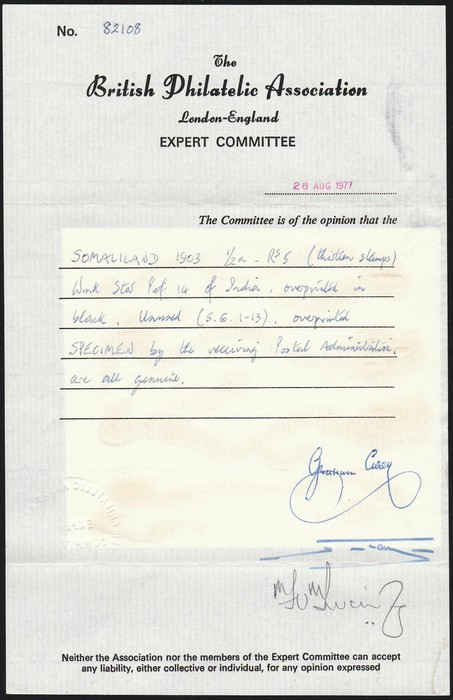 No. 82108
The
British Philatelic Association
London-England
EXPERT COMMITTEE
26 AUG 1977
The Committee is of the opinion that the
SOMALILAND 1903 ½a - Rs 5 (thirteen stamps)
Wmk Star Perf 14 of India, overprinted in
black. Unused (S.G. 1-13), overprinted
SPECIMEN by the receiving Postal Administration,
are all genuine.
Neither the Association nor the members of the Expert Committee can accept
any liability, either collective or individual, for any opinion expressed